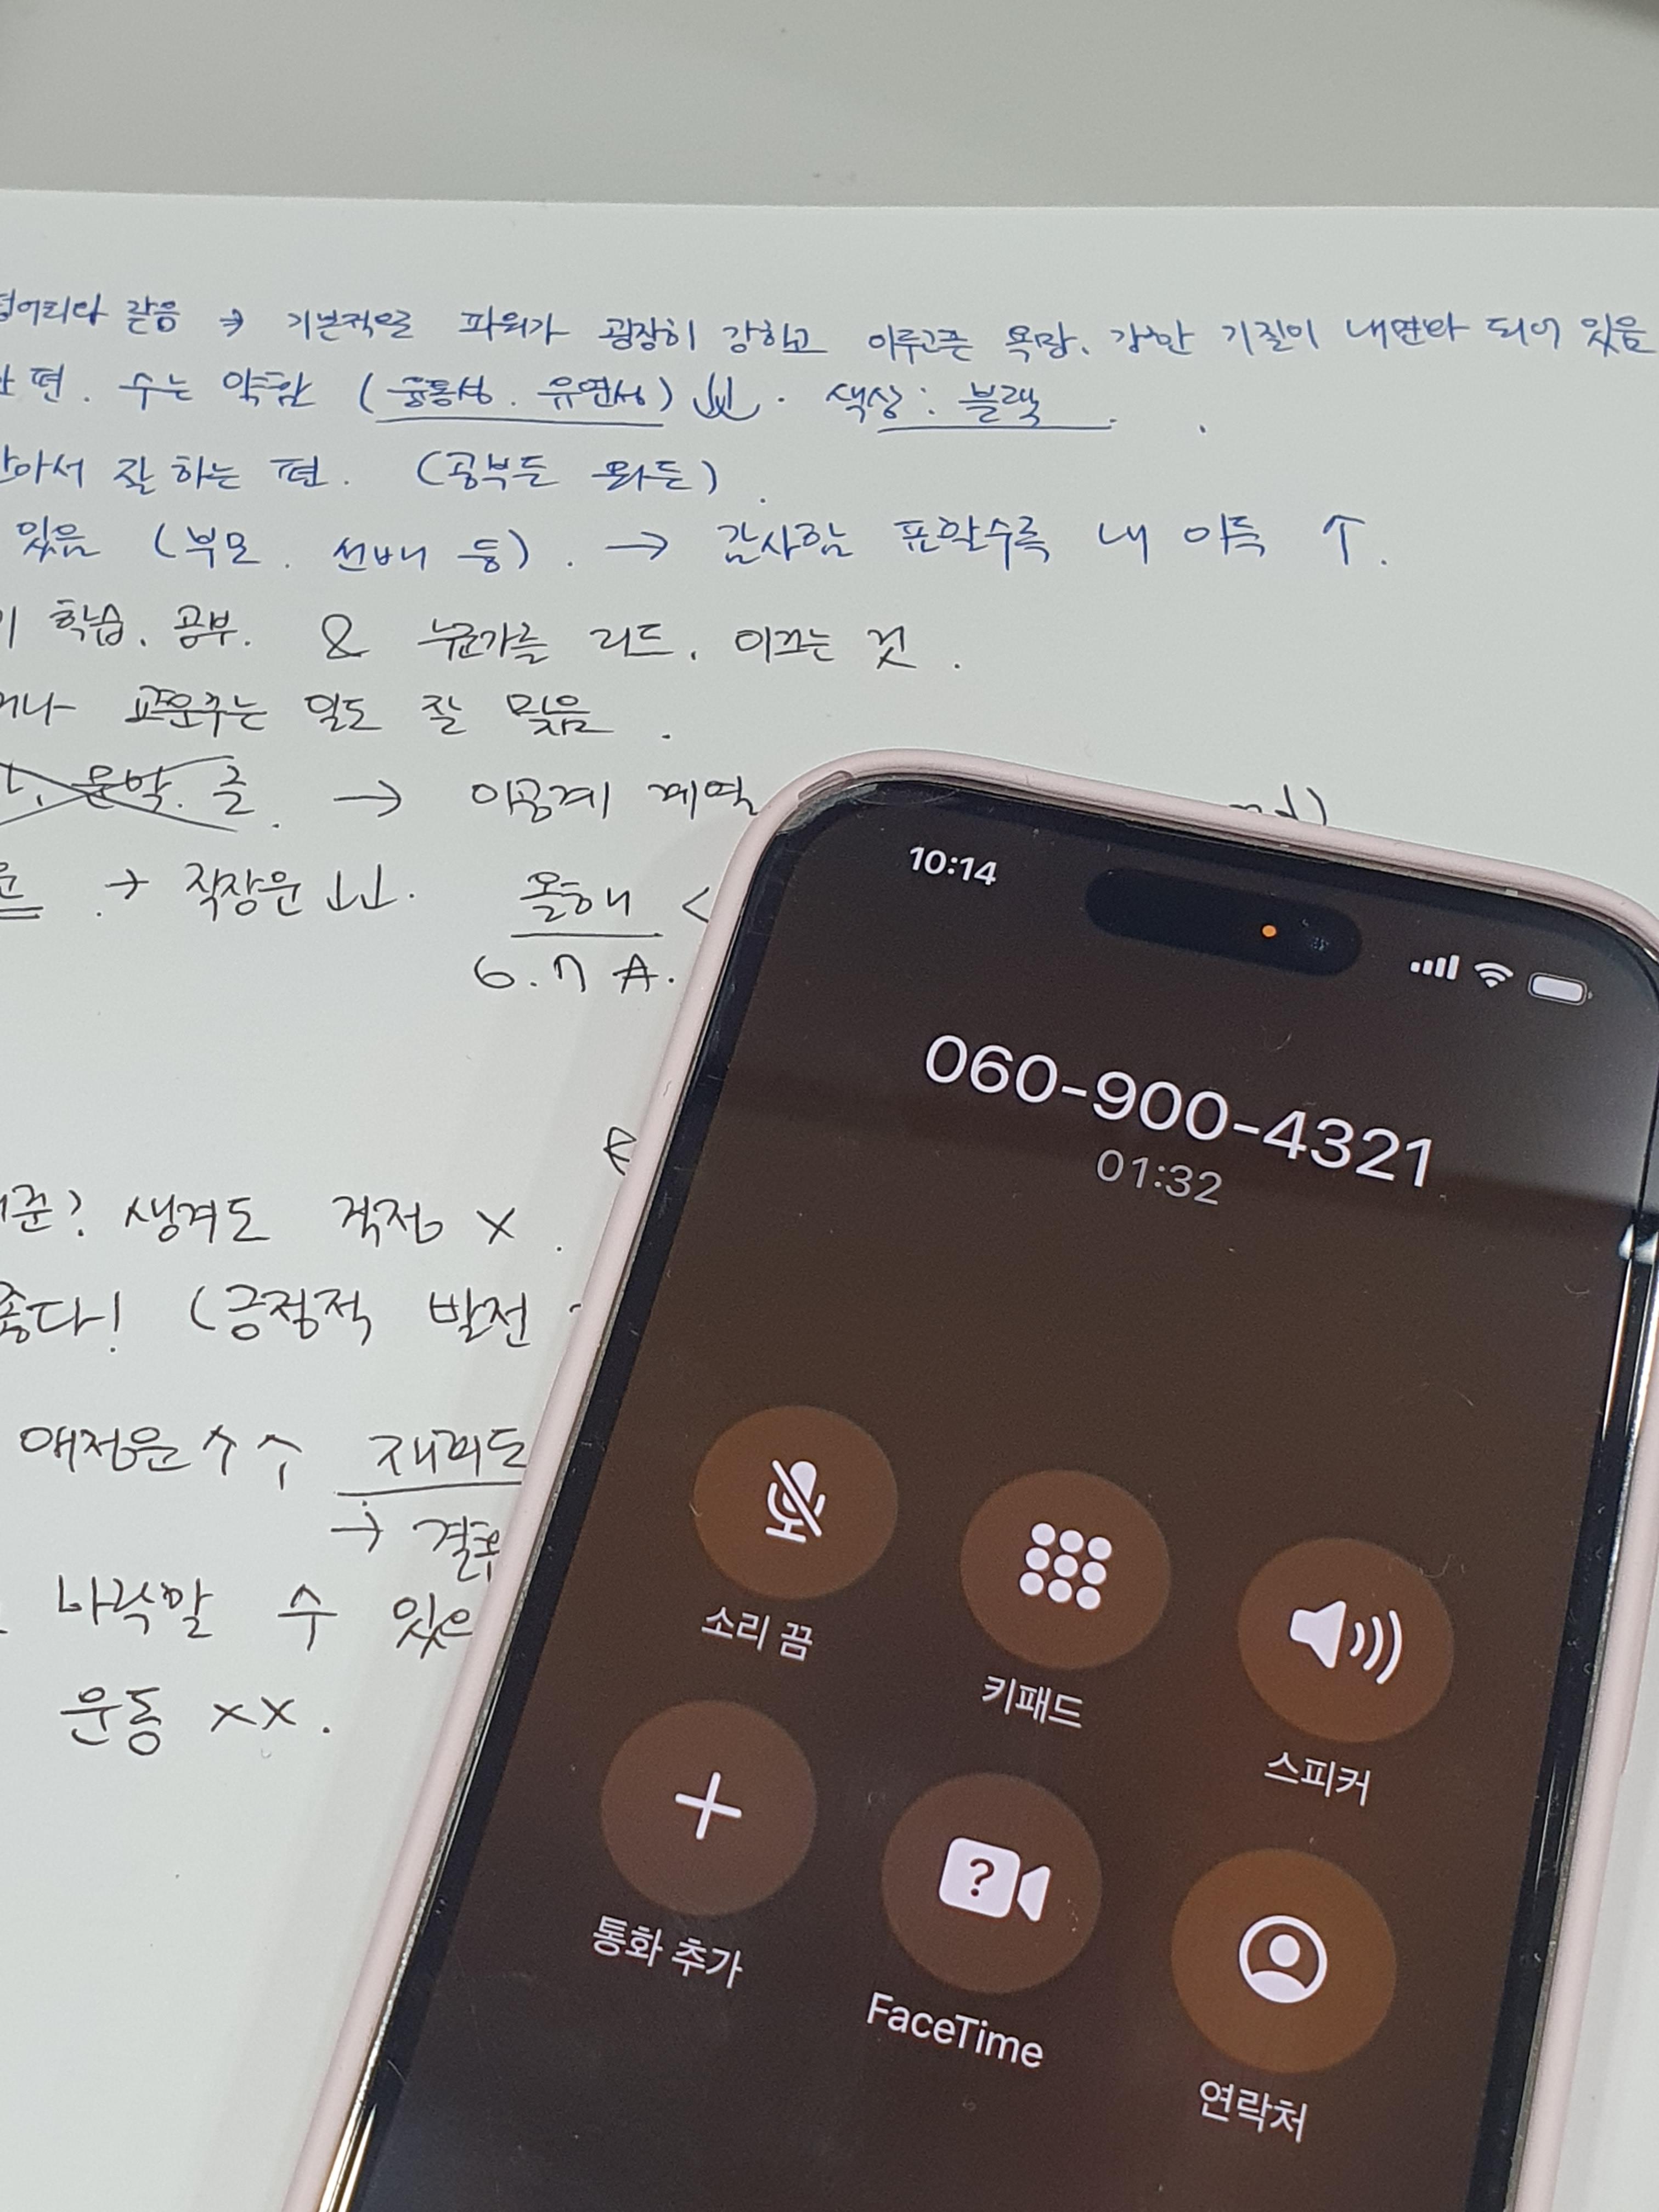 덩어리와 같음 → 기본적으로 파워가 굉장히 강하고 이루고픈 욕망, 강한 기질이 내면화 되어 있음
편. 수는 약함 (융통성. 유연성) ↓↓. 색상: 블랙
아서 잘 하는 편. (공부든 뭐든).
있음 (부모. 선배 등). → 감사함 표할수록 내 이득 ↑.
학습. 공부. & 누군가를 리드. 이끄는 것.
거나 교육주는 일도 잘 맞음.
문학. 글. → 이공계 계열
→ 직장운 ↓↓. 올해 <
6. 7 A.
생겨도 걱정 X.
좋다! (긍정적 발전
애정운 ↑↑ 재회도
→ 결혼
나락말 수 있음
운동 XX.
10:14
060-900-4321
01:32
소리 끔
키패드
스피커
통화 추가
FaceTime
연락처